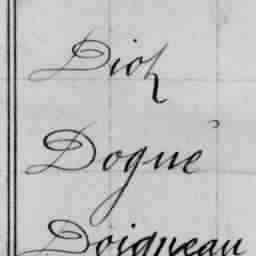 Dioz
Dogué
Doigneau